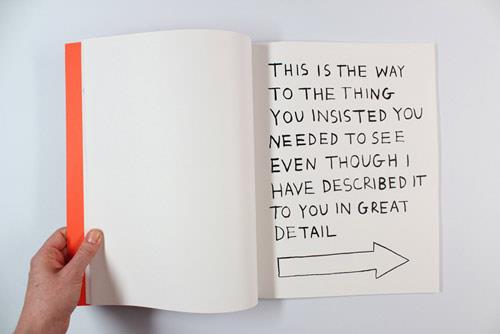 THIS IS THE WAY
TO THE THING
YOU INSISTED YOU
NEEDED TO SEE
EVEN THOUGH I
HAVE DESCRIBED IT
TO YOU IN GREAT
DETAIL